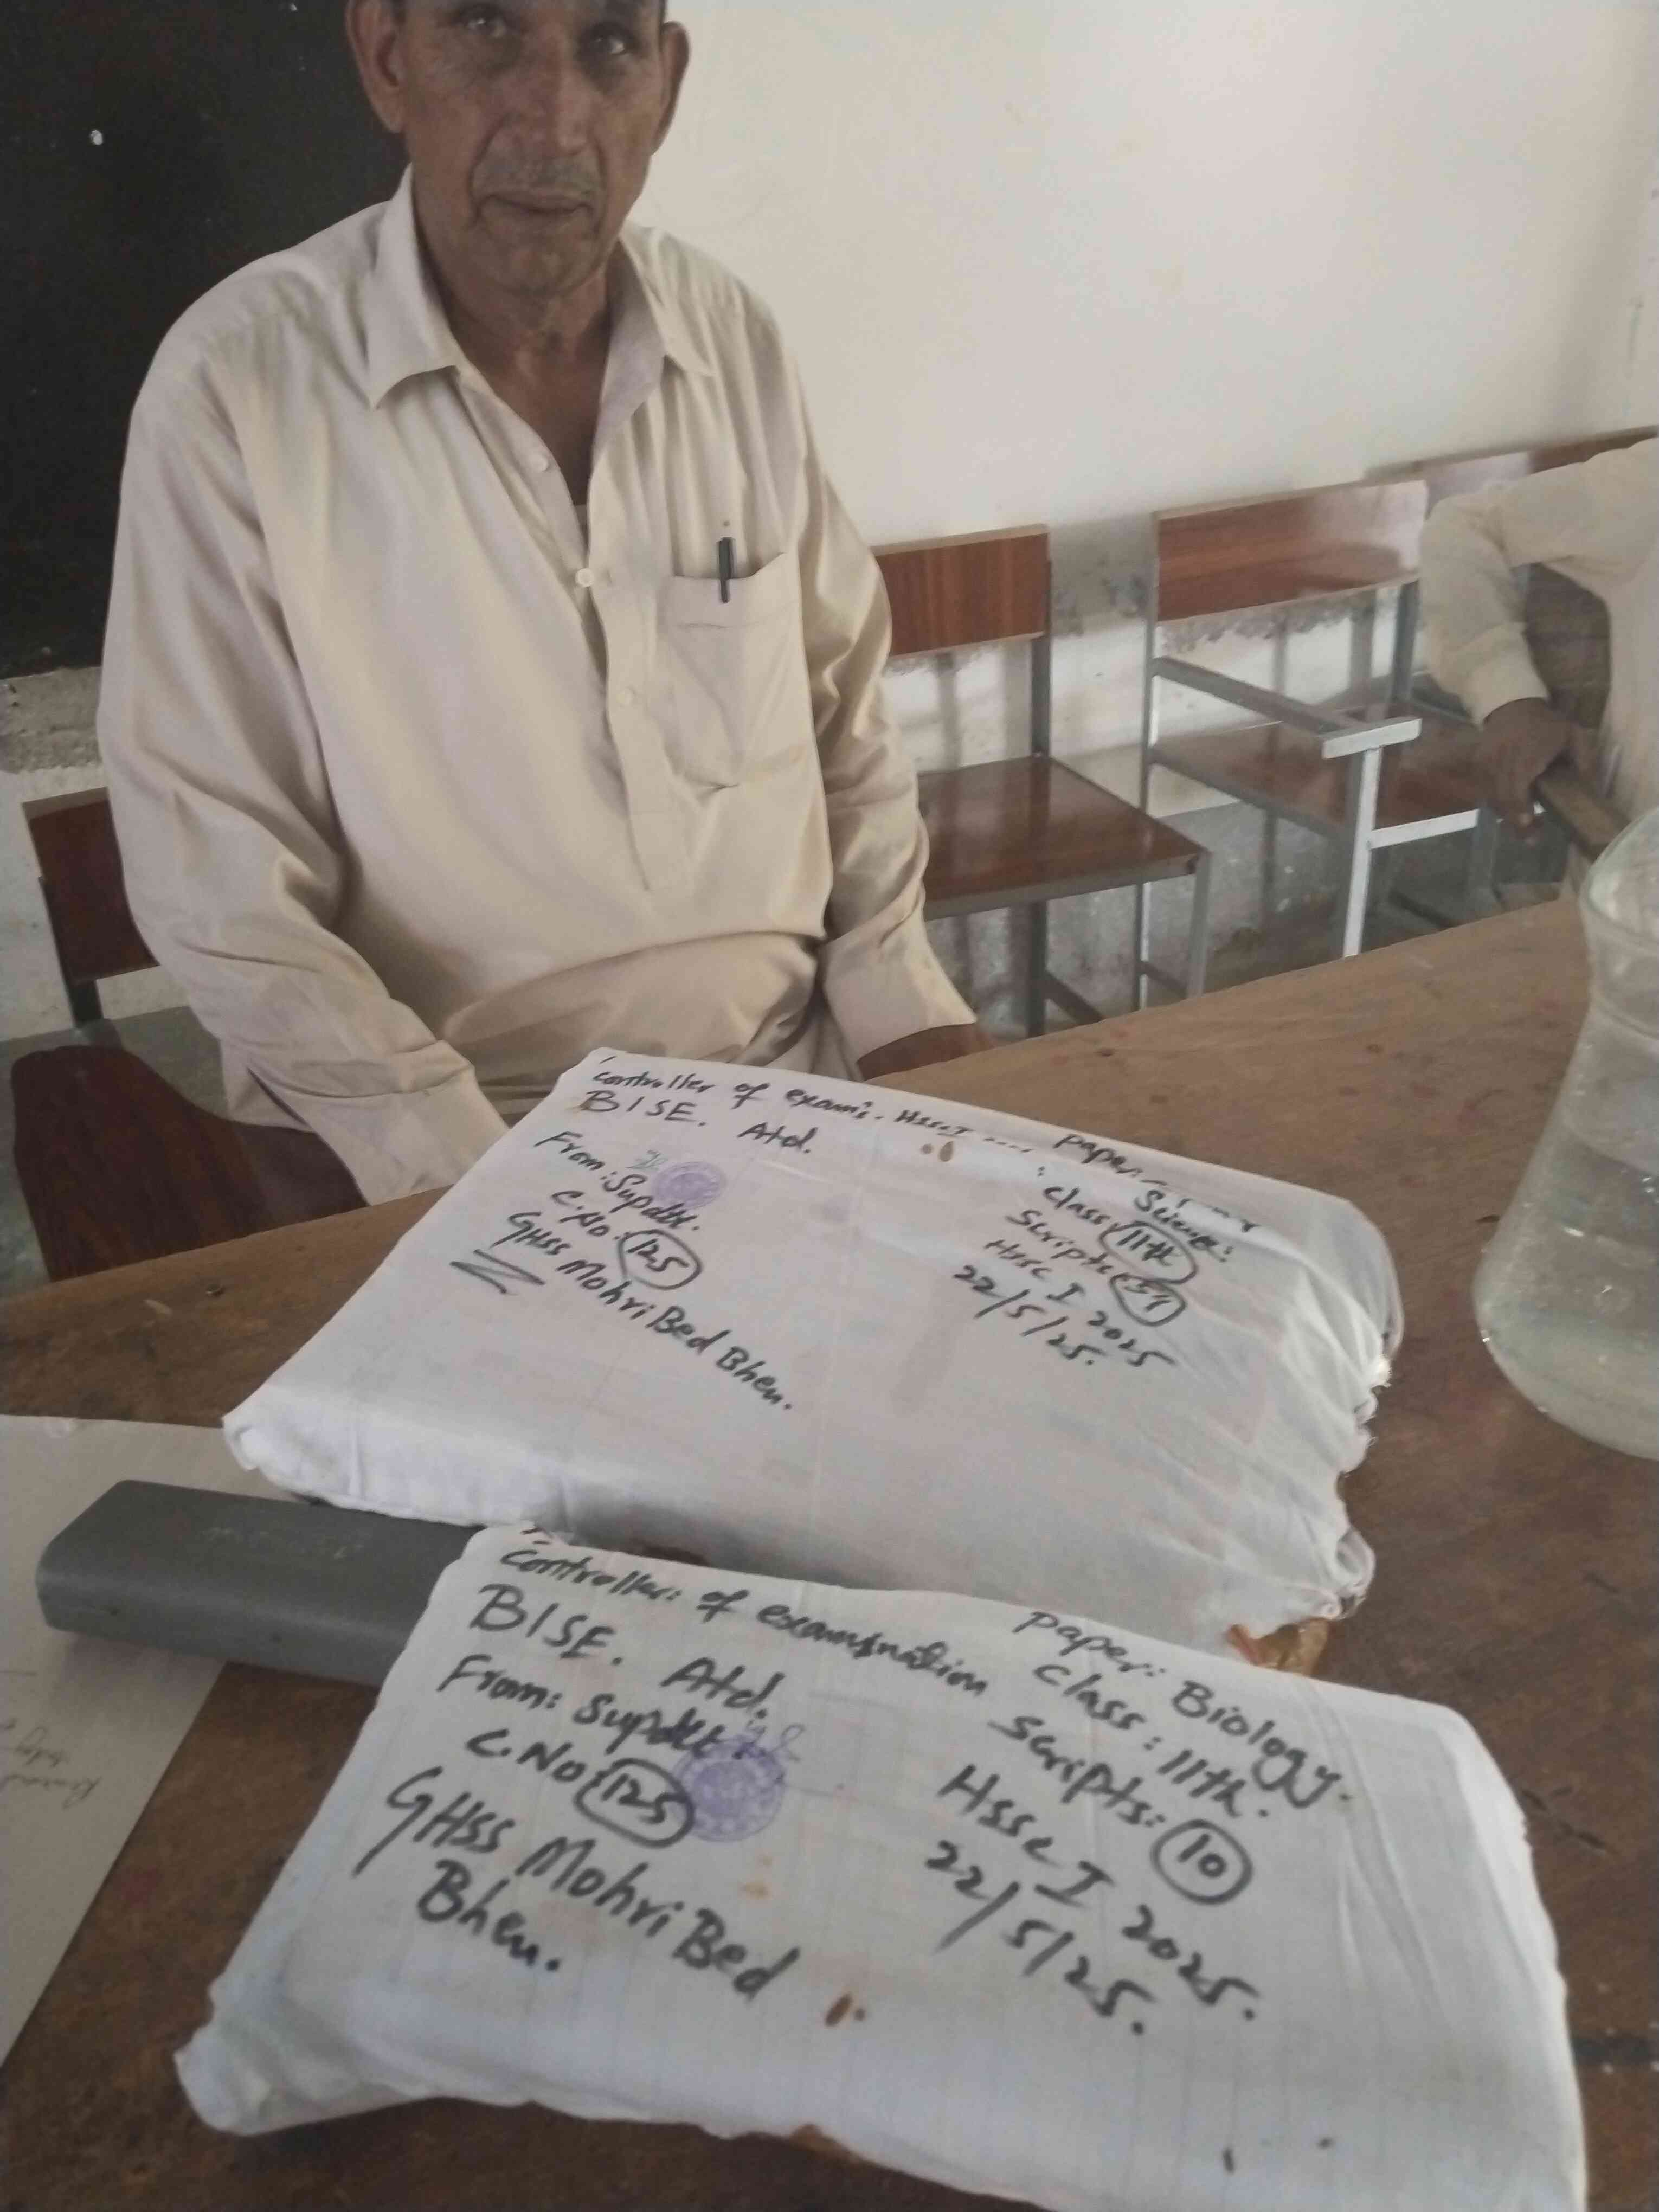 controller of exam's. Hssc I
BISE. Atd.
From: Supdtt.
C. No. 125
GHSS Mohri Bed Bhen.
paper
Science:
class 11th
Scripts
Hssc I 2025
22/5/25.
controller: of examination
BISE. Atd.
From: Supdtt.
C. No 125
GHSS Mohri Bed
Bhen.
paper: Biology.
class: 11th.
Scripts: 10
Hssc I 2025.
22/5/25.